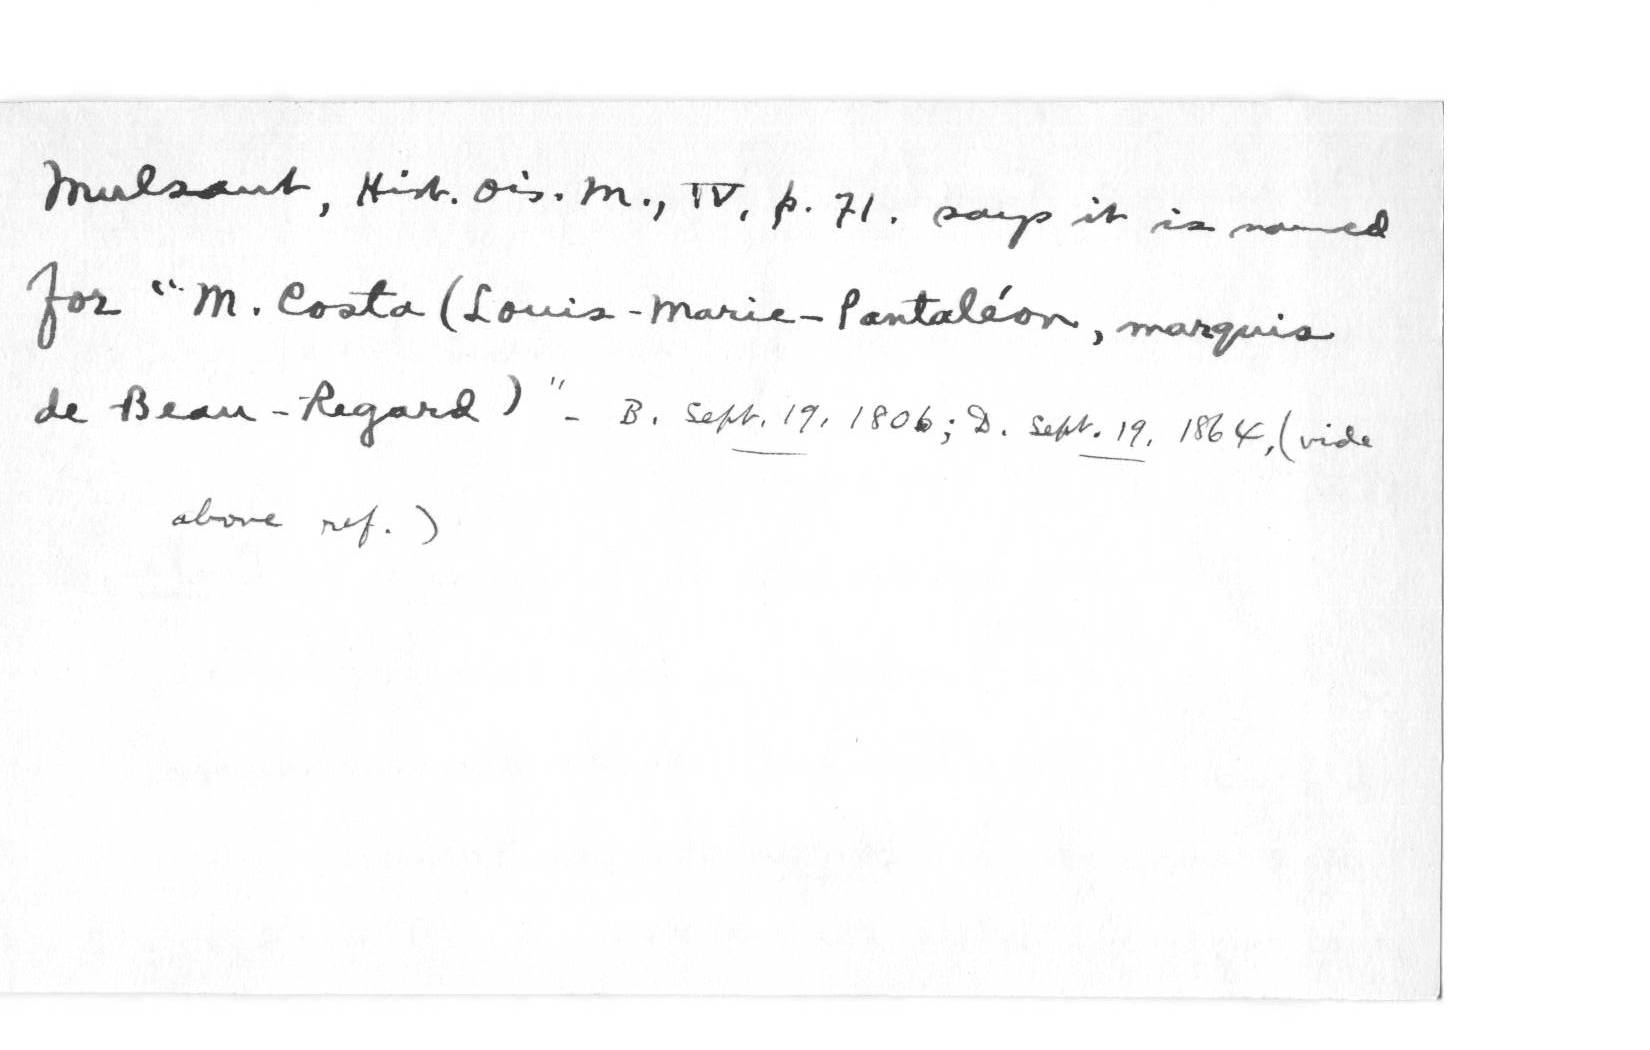 Mulsant, Hist. Ois. M., IV, p. 71. says it is named
for "M. Costa (Louis-Marie-Pantaléon, marquis
de Beau-Regard)" - B. Sept. 19, 1806; D. Sept. 19, 1864, (vide
above ref.)